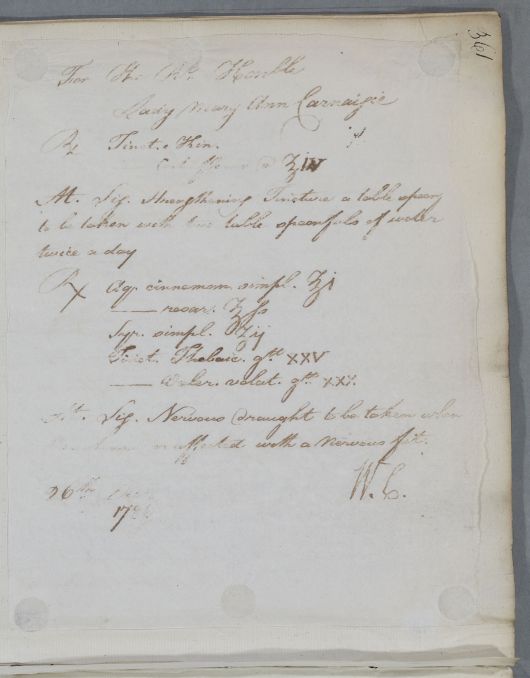 361
For the Rt. Honble
Lady Mary Ann Carnaigie
℞ Tinct. e Kin.
ʒIV
M. Sig. Strengthening Tincture a table spoon
to be taken with two table spoonfuls of water
twice a day
℞ Aq. cinnamom. simpl. ℥i
—— rosar. ℥ſs
Syr. simpl. ʒij
Tinct. Thebaic. gtt XXV
—— Valer. volat. gtt XXX
Sig. Nervous draught to be taken when
affected with a nervous fit.
W. C.
26th